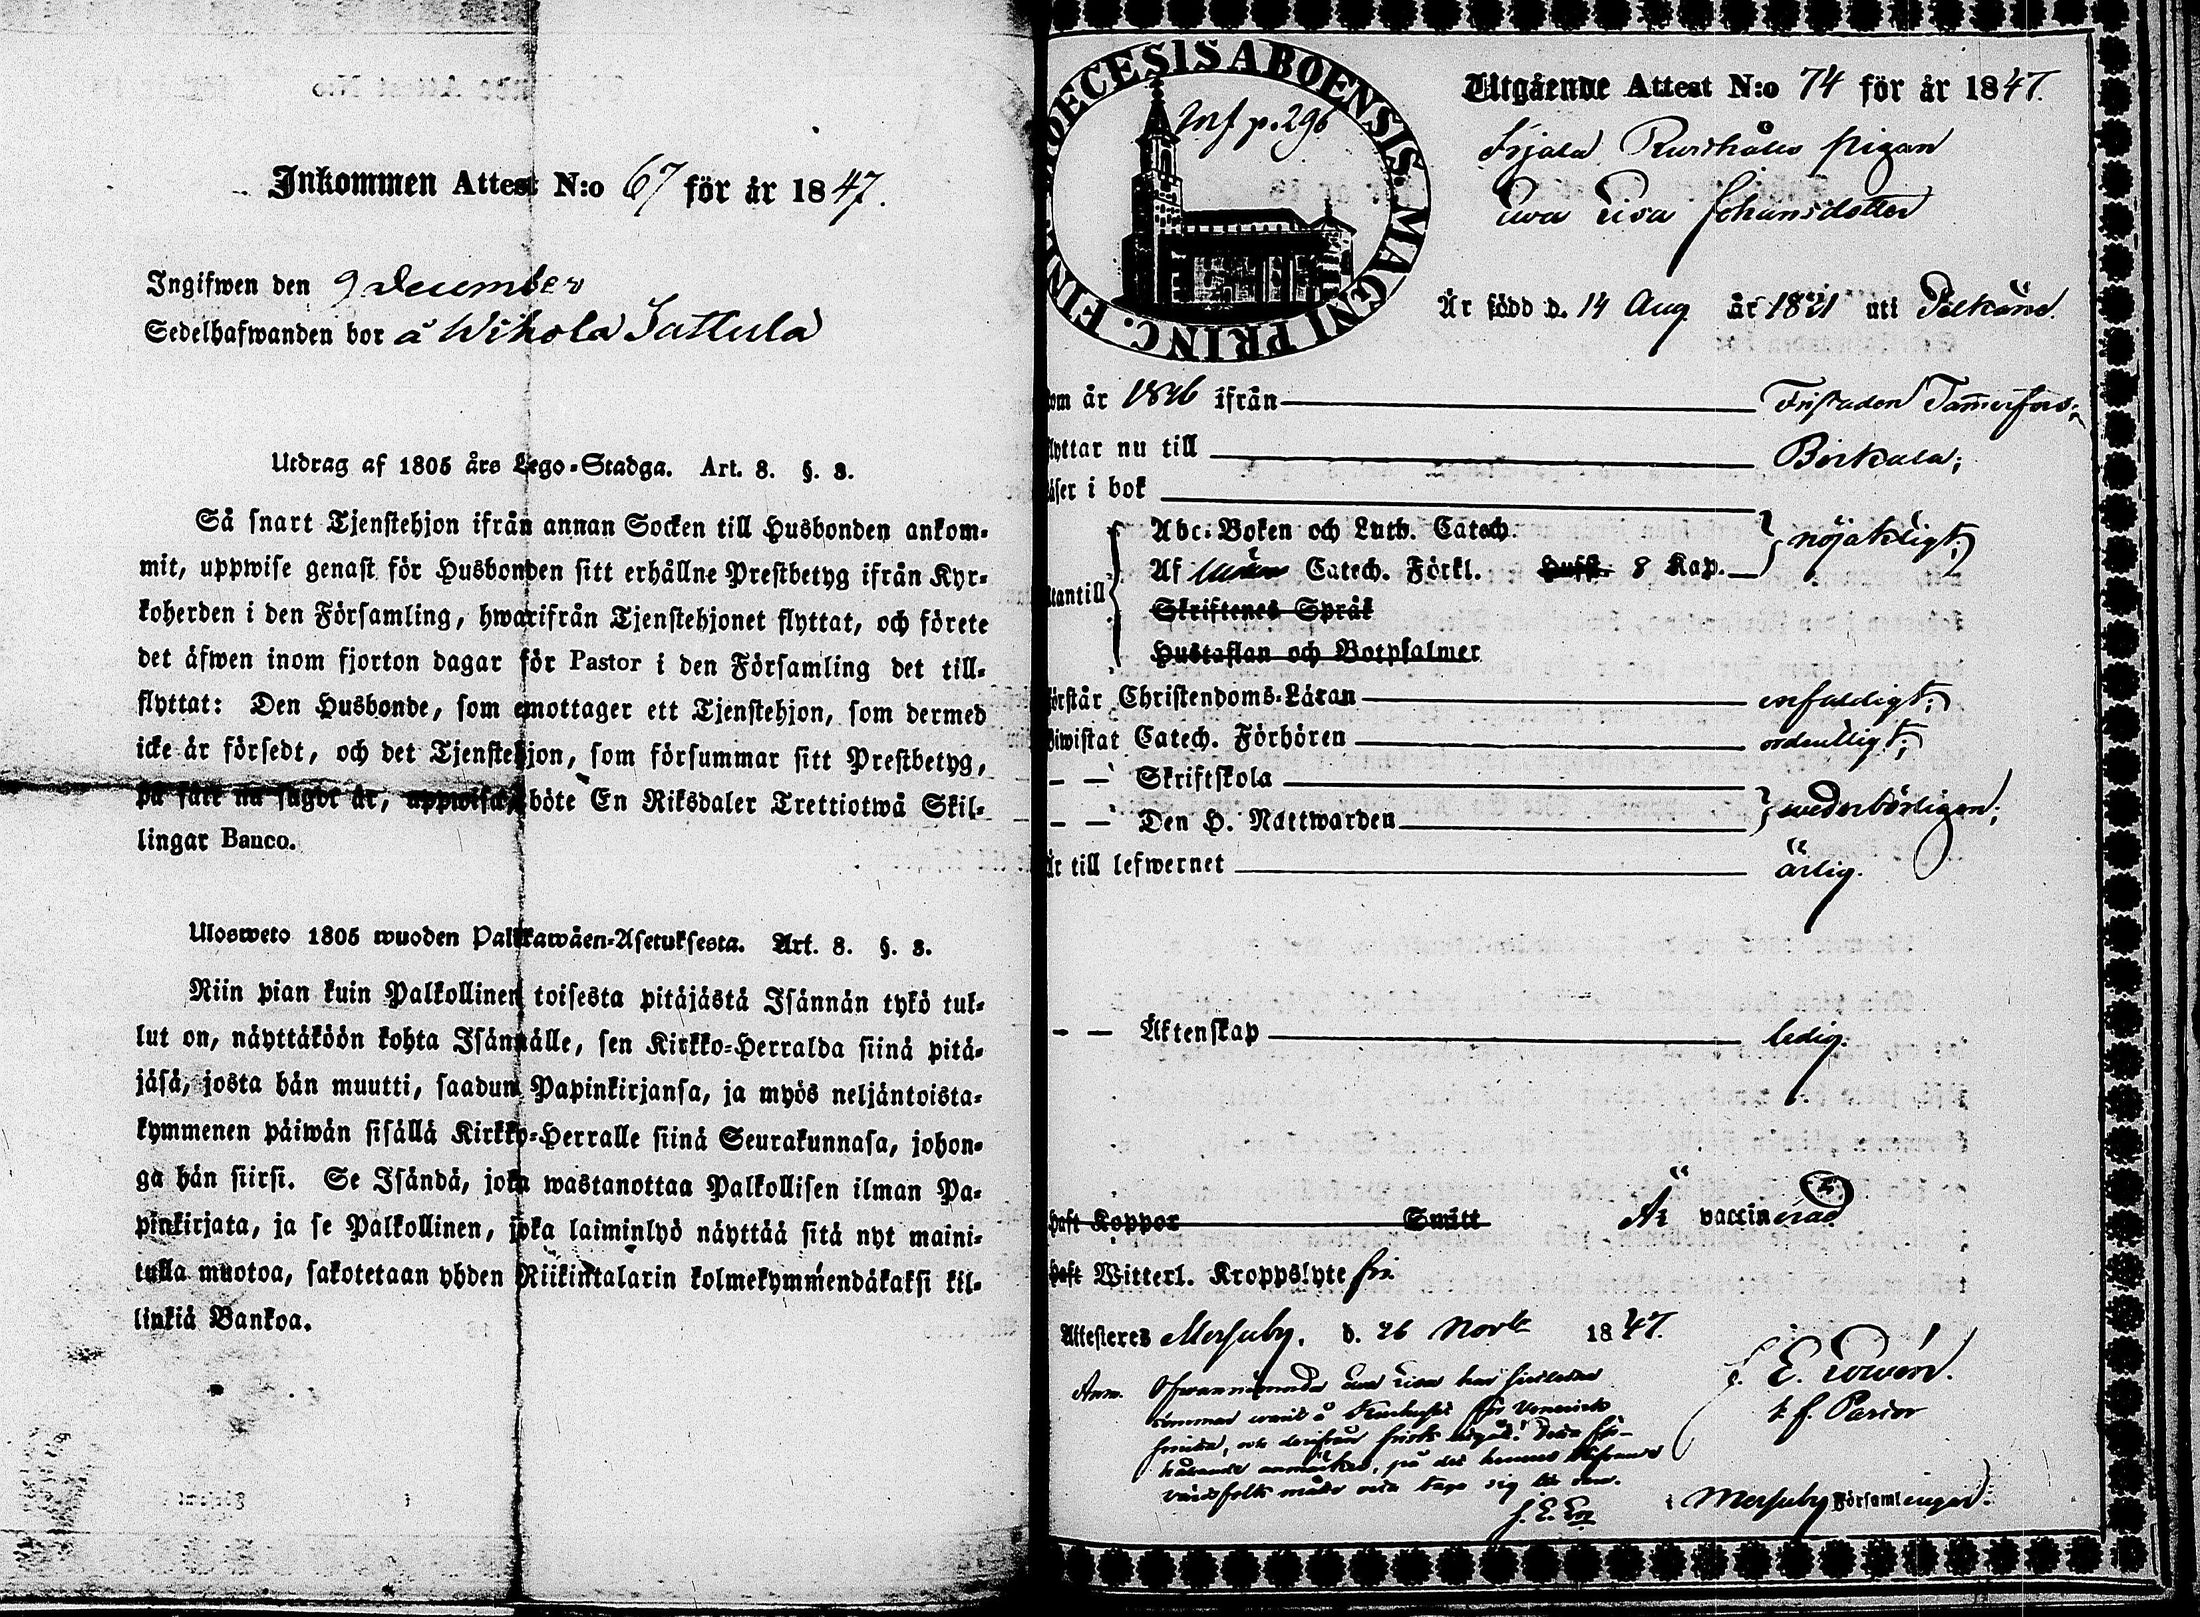 Inkommen Attest N:o 67 för år 1847.
Ingifwen den 9 december
Sedelhafwanden bor å Wihola Sattula
Utdrag af 1805 års Lego-Stadga. Art. 8. §. 8.
Så snart Tjenstehjon ifrån annan Socken till Husbonden ankom-
mit, uppwise genast för Husbonden sitt erhållne Prestbetyg ifrån Kyr-
koherden i den Församling, hwarifrån Tjenstehjonet flyttat, och förete
det äfwen inom fjorton dagar för Pastor i den Församling det till-
flyttat: Den Husbonde, som emottager ett Tjenstehjon, som dermed
icke är försedt, och det Tjenstehjon, som försummar sitt Prestbetyg,
på sätt nu sagdt är, uppwisa, böte En Riksdaler Trettiotwå Skil-
lingar Banco.
Ulosweto 1805 wuoden Palkkawäen-Asetuksesta. Art. 8. §. 8.
Niin pian kuin Palkollinen toisesta pitäjästä Isännän tykö tul-
lut on, näyttäköön kohta Isännälle, sen Kirkko-Herralda siinä pitä-
jäsä, josta hän muutti, saadun Papinkirjansa, ja myös neljäntoista-
kymmenen päiwän sisällä Kirkko-Herralle siinä Seurakunnasa, johon-
ga hän siirsi. Se Isändä, joka wastanottaa Palkollisen ilman Pa-
pinkirjata, ja se Palkollinen, joka laiminlyö näyttää sitä nyt maini-
tulla muotoa, sakotetaan yhden Riikintalarin kolmekymmendäkaksi kil-
linkiä Bankoa.
DIOECESIS ABOENSIS. MAGNI PRINC. FINL.
Inf p. 296
Utgående Attest N:o 74 för år 1847.
pigan
Ewa Lisa Johansdotter
Är född d. 14 Aug. år 1821 uti Pelkäne.
om år 1846 ifrån Fristaden Tammerfors;
flyttar nu till Birkala;
läser i bok
utantill
Abc-Boken och Luth. Catech.
nöjaktigt;
Af Catech. Förkl. Hussk. 8 Kap.
Skriftenes Språk
Hustaflan och Botpsalmer
förstår Christendoms-Läran enfaldigt;
biwistat Catech. Förhören ordentligt;
— — Skriftskola
wederbörligen;
— — Den H. Nattwarden
är till lefwernet ärlig.
— — Äktenskap ledig.
haft Koppor Smitt Är vaccinerad
haft Witterl. Kroppslyte fri.
Attesteres Messuby. d. 26 Novbr 1847.
J. E.
t. f. Pastor
Anm. Ofwannämnda Ewa Lisa har sistledne
sommar warit å Kurhuset för Venerisk
smitta, och derifrån frisk utgått! Detta för-
hållande anmärkes, på det hennes blifwande
värdsfolk måtte veta taga sig till vara.
J. E.
i Messuby Församlingar.